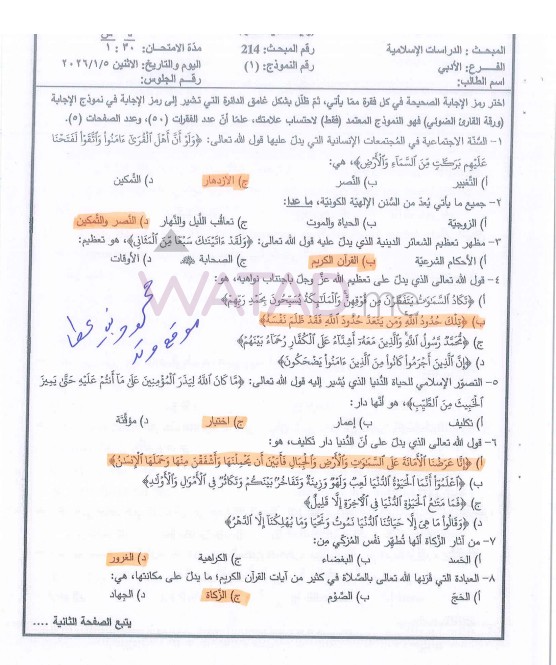 المبحث : الدراسات الإسلامية
رقم المبحث: 214
مدة الامتحان: ٣٠ : ١
الفـــرع: الأدبي
رقم النموذج: (١)
اليوم والتاريخ: الاثنين ٢٠٢٦/١/٥
اسم الطالب:
رقــم الجلوس:
اختر رمز الإجابة الصحيحة في كل فقرة ممّا يأتي، ثمّ ظلّل بشكل غامق الدائرة التي تشير إلى رمز الإجابة في نموذج الإجابة
(ورقة القارئ الضوئي) فهو النموذج المعتمد (فقط) لاحتساب علامتك، علمًا أنّ عدد الفقرات (٥٠)، وعدد الصفحات (٥).
١- السُنّة الاجتماعية في المُجتمعات الإنسانية التي يدلّ عليها قول الله تعالى: ﴿وَلَوْ أَنَّ أَهْلَ الْقُرَىٰ ءَامَنُواْ وَاتَّقَوْاْ لَفَتَحْنَا
عَلَيْهِم بَرَكَٰتٍ مِّنَ السَّمَآءِ وَالْأَرْضِ﴾، هي:
أ) التَّغيير
ب) النَّصر
ج) الازدهار
د) التَّمكين
٢- جميع ما يأتي يُعدّ من السُّنن الإلهيّة الكونيّة، ما عدا:
أ) الزوجيّة
ب) الحياة والموت
ج) تعاقُب اللّيل والنّهار
د) النّصر والتّمكين
٣- مظهر تعظيم الشعائر الدينية الذي يدلّ عليه قول الله تعالى: ﴿وَلَقَدْ ءَاتَيْنَٰكَ سَبْعًا مِّنَ الْمَثَانِي﴾، هو تعظيم:
أ) الأحكام الشرعيّة
ب) القرآن الكريم
ج) الصحابة
د) الأوقات
٤- قول الله تعالى الذي يدلّ على تعظيم الله عزّ وجلّ باجتناب نواهيه، هو:
أ) ﴿تَكَادُ السَّمَٰوَٰتُ يَتَفَطَّرْنَ مِن فَوْقِهِنَّ وَالْمَلَٰٓئِكَةُ يُسَبِّحُونَ بِحَمْدِ رَبِّهِمْ﴾
ب) ﴿تِلْكَ حُدُودُ اللَّهِ وَمَن يَتَعَدَّ حُدُودَ اللَّهِ فَقَدْ ظَلَمَ نَفْسَهُ﴾
ج) ﴿مُّحَمَّدٌ رَّسُولُ اللَّهِ وَالَّذِينَ مَعَهُ أَشِدَّآءُ عَلَى الْكُفَّارِ رُحَمَآءُ بَيْنَهُمْ﴾
د) ﴿إِنَّ الَّذِينَ أَجْرَمُواْ كَانُواْ مِنَ الَّذِينَ ءَامَنُواْ يَضْحَكُونَ﴾
٥- التصوّر الإسلامي للحياة الدُنيا الذي يُشير إليه قول الله تعالى: ﴿مَّا كَانَ اللَّهُ لِيَذَرَ الْمُؤْمِنِينَ عَلَىٰ مَآ أَنتُمْ عَلَيْهِ حَتَّىٰ يَمِيزَ
الْخَبِيثَ مِنَ الطَّيِّبِ﴾، هو أنّها دار:
أ) تكليف
ب) إعمار
ج) اختبار
د) مؤقّتة
٦- قول الله تعالى الذي يدلّ على أنّ الدُنيا دار تكليف، هو:
أ) ﴿إِنَّا عَرَضْنَا الْأَمَانَةَ عَلَى السَّمَٰوَٰتِ وَالْأَرْضِ وَالْجِبَالِ فَأَبَيْنَ أَن يَحْمِلْنَهَا وَأَشْفَقْنَ مِنْهَا وَحَمَلَهَا الْإِنسَٰنُ﴾
ب) ﴿اعْلَمُوٓاْ أَنَّمَا الْحَيَوٰةُ الدُّنْيَا لَعِبٌ وَلَهْوٌ وَزِينَةٌ وَتَفَاخُرٌ بَيْنَكُمْ وَتَكَاثُرٌ فِي الْأَمْوَٰلِ وَالْأَوْلَٰدِ﴾
ج) ﴿فَمَا مَتَٰعُ الْحَيَوٰةِ الدُّنْيَا فِي الْآخِرَةِ إِلَّا قَلِيلٌ﴾
د) ﴿وَقَالُواْ مَا هِيَ إِلَّا حَيَاتُنَا الدُّنْيَا نَمُوتُ وَنَحْيَا وَمَا يُهْلِكُنَآ إِلَّا الدَّهْرُ﴾
٧- من آثار الزّكاة أنّها تُطهّر نفْس المُزكّي مِن:
أ) الحَسد
ب) البغضاء
ج) الكراهية
د) الغرور
٨- العبادة التي قَرَنها الله تعالى بالصّلاة في كثير من آيات القرآن الكريم؛ ما يدلّ على مكانتها، هي:
أ) الحَجّ
ب) الصَّوْم
ج) الزّكاة
د) الجهاد
يتبع الصفحة الثانية ....
WATAD.me
موقع وتد